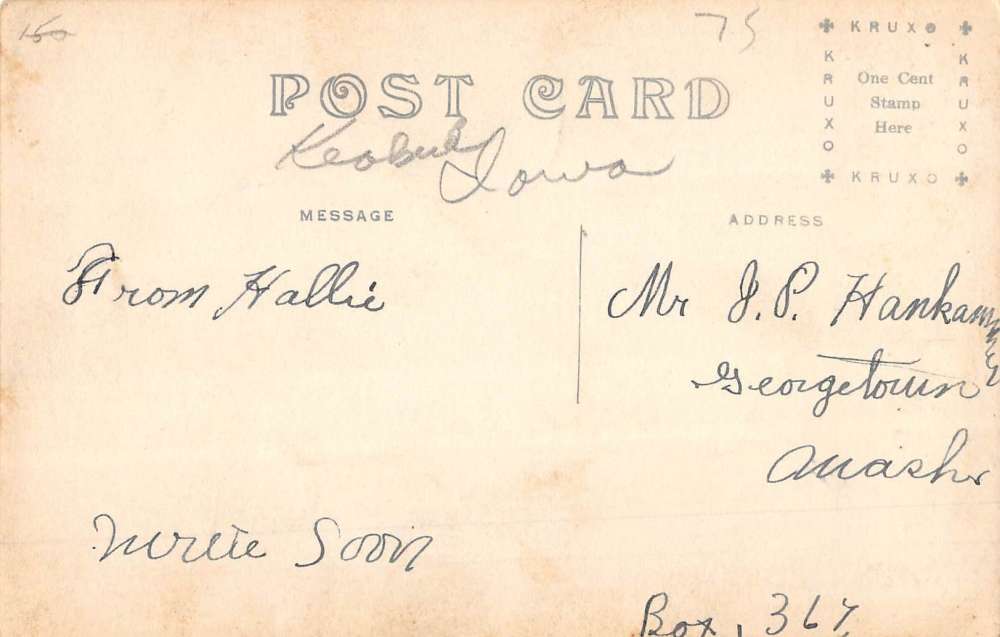 150
75
POST CARD
KRUXO
KRUXO
One Cent
Stamp
Here
KRUXO
KRUXO
Iowa
MESSAGE
ADDRESS
From Hallie
Mr J. P. Hankammer
Georgetown
Wash.
Write Soon
Box, 367